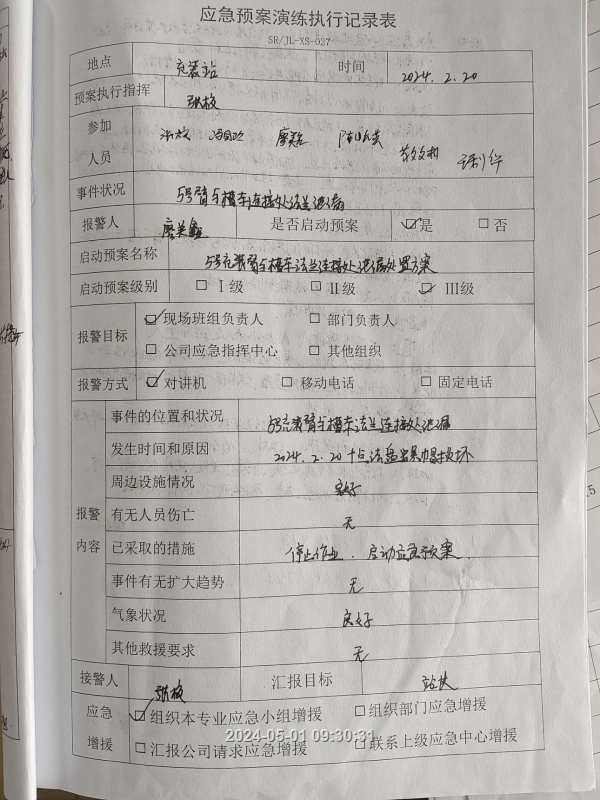 应急预案演练执行记录表
SR/JL-XS-027
地点 充装站 时间 2024.2.20
预案执行指挥 张校
参加
人员
事件状况 5号臂与槽车连接处法兰泄漏
报警人 是否启动预案 ☑是 □否
启动预案名称 5号充装臂与槽车法兰连接处泄漏处置方案
启动预案级别 □Ⅰ级 □Ⅱ级 ☑Ⅲ级
报警目标 ☑现场班组负责人 □部门负责人
□公司应急指挥中心 □其他组织
报警方式 ☑对讲机 □移动电话 □固定电话
报警内容
事件的位置和状况 5号充装臂与槽车法兰连接处泄漏
发生时间和原因 2024.2.20 十点 法兰 损坏
周边设施情况 良好
有无人员伤亡 无
已采取的措施 停止作业．启动应急预案．
事件有无扩大趋势 无
气象状况 良好
其他救援要求 无
接警人 张校 汇报目标 站长
应急 ☑组织本专业应急小组增援 □组织部门应急增援
增援 □汇报公司请求应急增援 □联系上级应急中心增援
2024-05-01 09:30:31